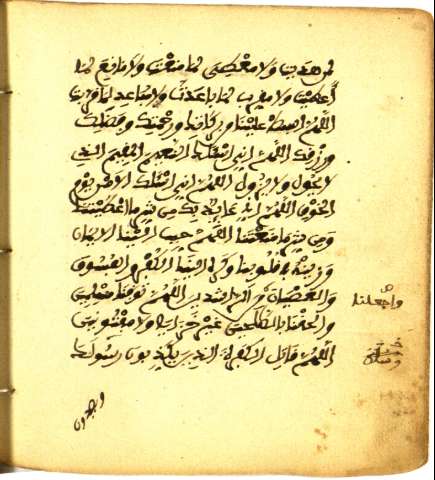 لمن هديت ولا معطي لما منعت ولا مانع لما
أعطيت ولا مقرب لما باعدت ولا مباعد لما قربت
اللهم ابسط علينا من بركاتك ورحمتك وفضلك
ورزقك اللهم اني اسئلك النعيم المقيم الذي
لا يحول ولا يزول اللهم اني اسئلك الامن يوم
الخوف اللهم اني عائذ بك من شر ما اعطيتنا
ومن شر ما منعتنا اللهم حبب الينا الايمان
وزينه في قلوبنا وكره الينا الكفر والفسوق
والعصيان من الراشدين اللهم توفنا مسلمين
واجعلنا صح
والحقنا بالصالحين غير خزايا ولا مفتونين
اللهم قاتل الكفرة الذين يكذبون رسولك
ويصدون